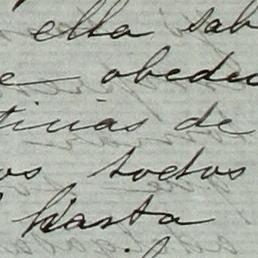 ella sab
e obedec
ticias de
os todos
hasta